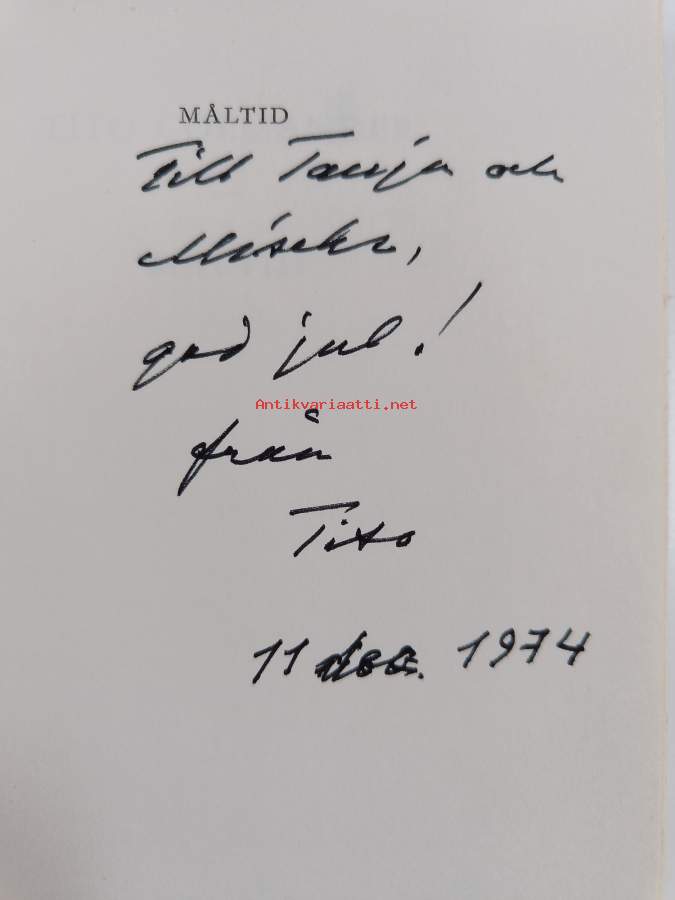 MÅLTID
Till Tanja och
Mischa,
god jul!
Antikvariaatti.net
från
Tito
11 dec. 1974